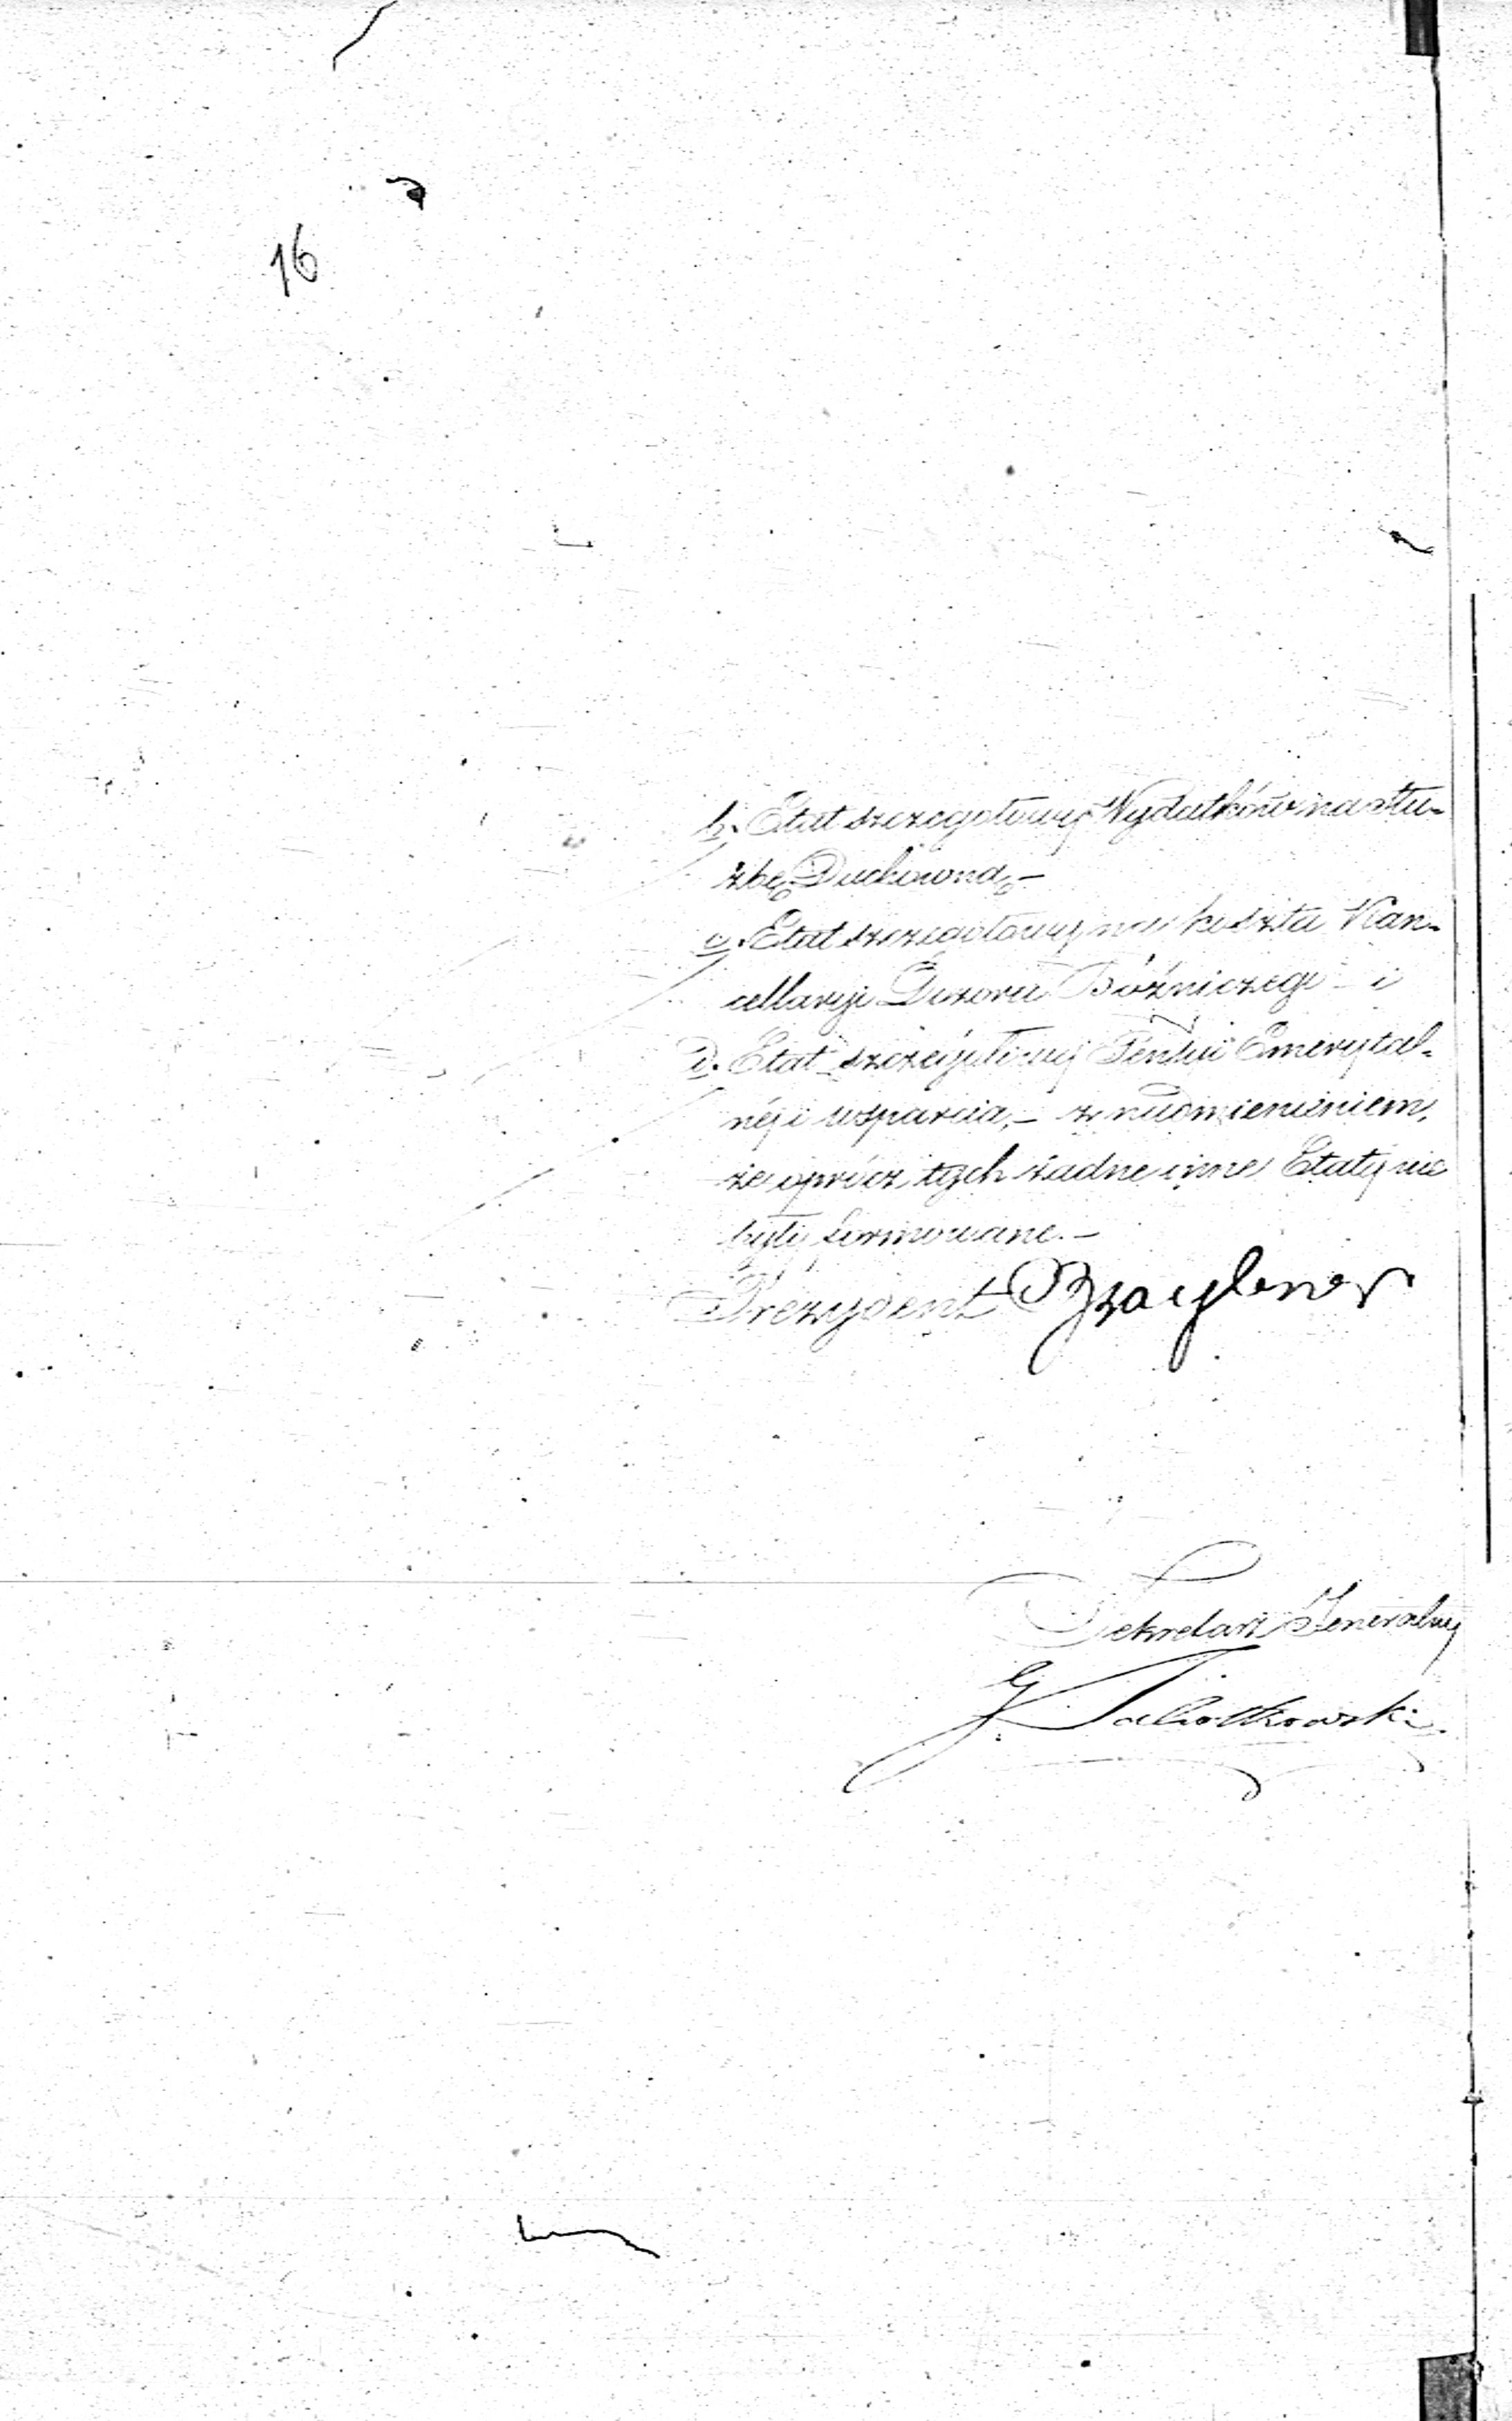 16
b. Etat szczegółowy Wydatków na słu-
żbę Duchowną,-
c. Etat szczegółowy na koszta Kan-
cellaryi Dozoru Bóźniczego - i
d. Etat szczegółowy Pensii Emerytal-
néj i wsparcia,- z nadmienieniem,
że oprócz tych żadne inne Etaty nie
były formowane.-
Prezydent
Sekretarz Jeneralny
G.